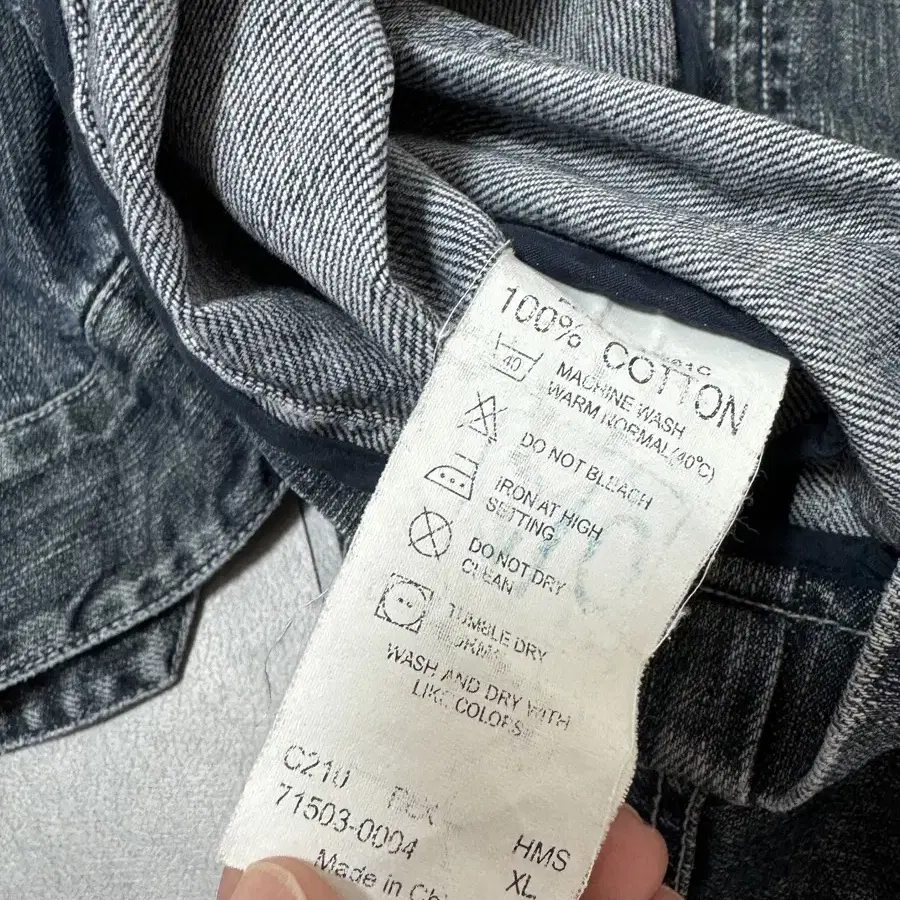 100% COTTON
40
MACHINE WASH
WARM NORMAL(40°C)
DO NOT BLEACH
IRON AT HIGH
SETTING
DO NOT DRY
CLEAN
TUMBLE DRY
WASH AND DRY WITH
LIKE COLORS
C210
71503-0004
HMS
Made in
XL